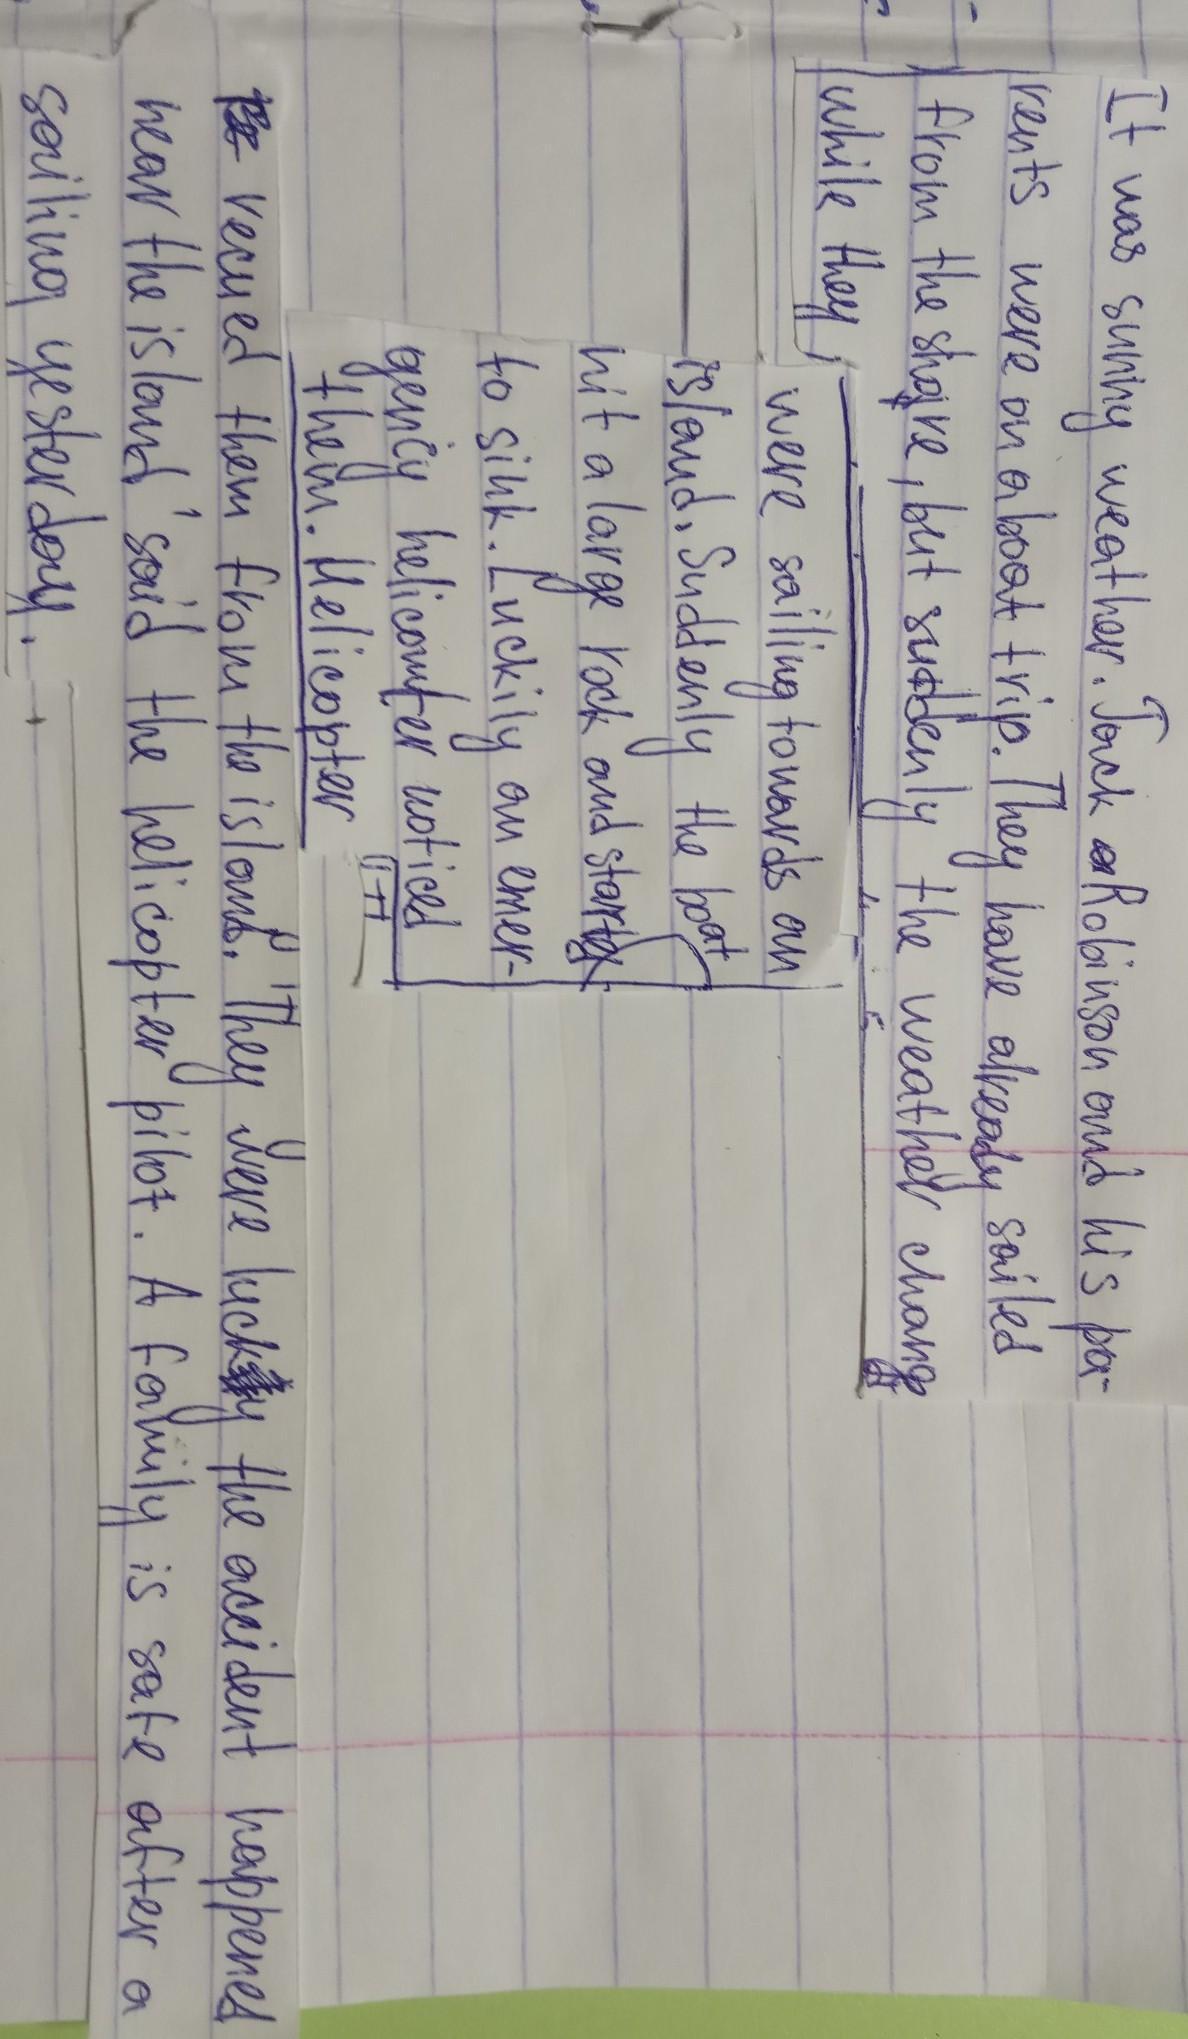 It was suniny weather. Jack Robinson and his pa-
rents were on a boat trip. They have already sailed
from the shore, but suddenly the weather change
while they
were sailing towards an
island. Suddenly the boat
hit a large rock and started
to sink. Luckily an emer-
gency helicompter noticed
them. Helicopter
recued them from the island. "They were lucky the accident happened
near the island" said the helicopter pilot. A family is safe after a
sailing yesterday.